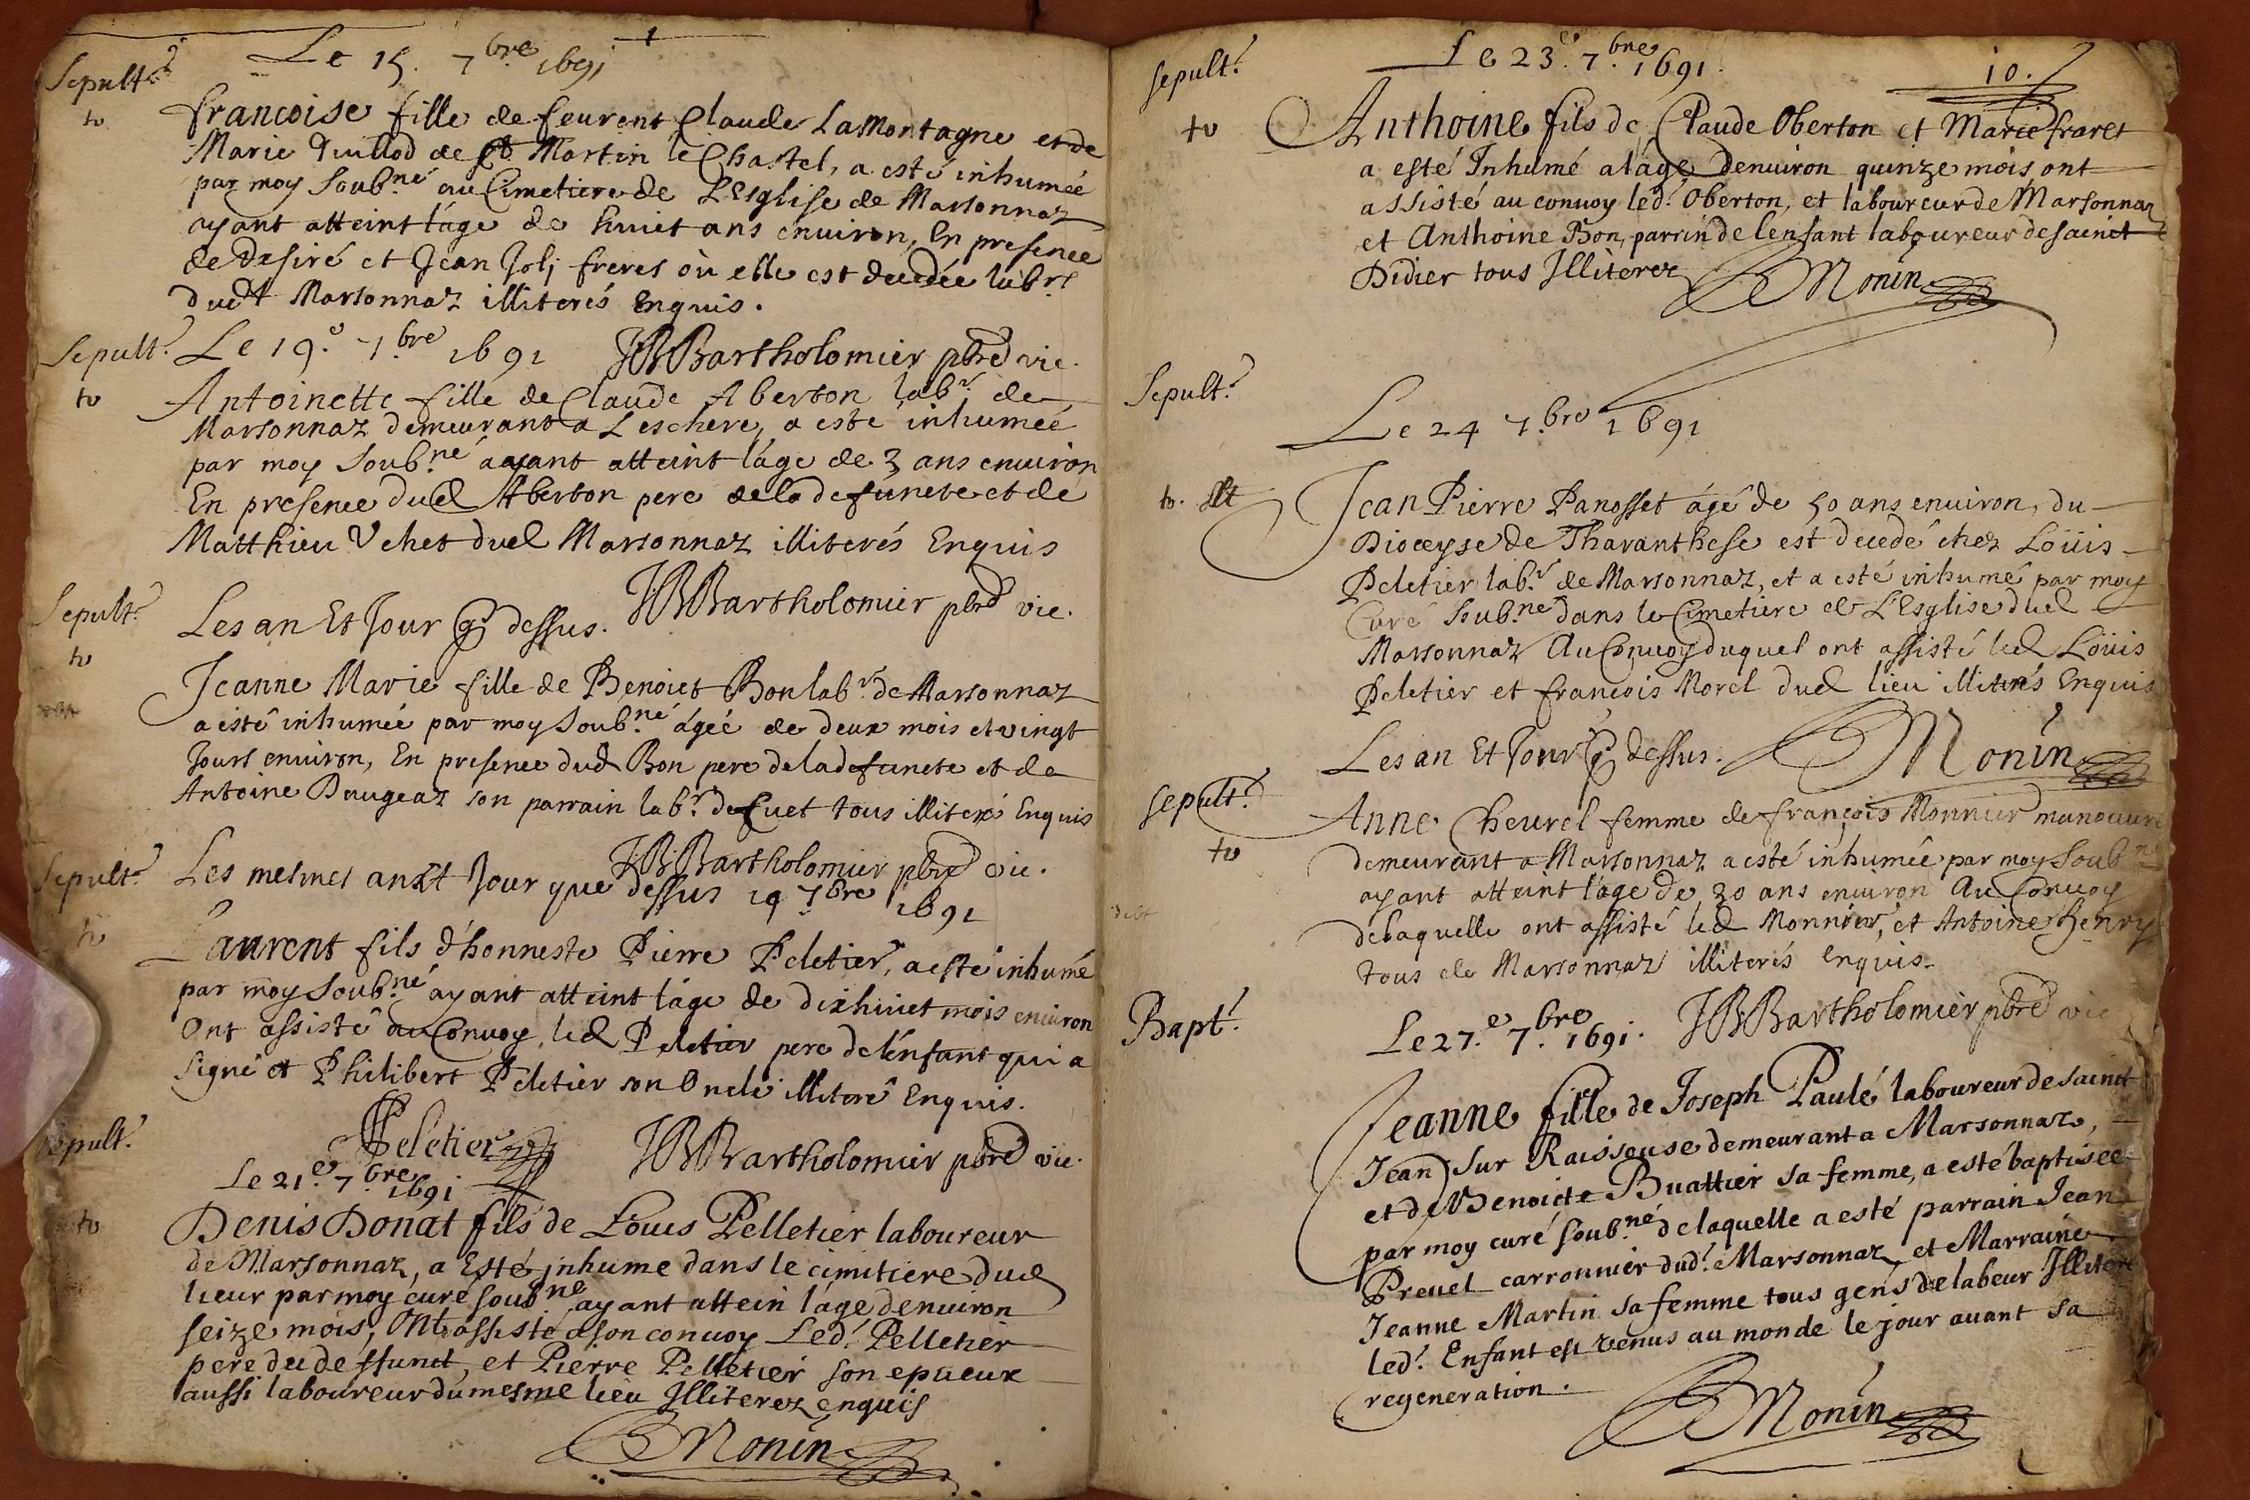 Sepult.
to
Le 15. 7.bre 1691
francoise fille de feu Laurent Claude LaMontagne et de
Marie Guillod de St Martin le Chastel, a esté inhumée
par moy Soub.né au Cimetiere de L'Esglise de Marsonnaz
ayant atteint l'áge de huict ans enuiron, En presence
de Desiré et Jean Joli freres où elle est decedée lab.rs
dud. Marsonnaz illiterés Enquis.
Sepult.
to
Le 19.e 7.bre 1691
JBBartholomier pbre vic.
Antoinette fille de Claude Aberton lab.r de
Marsonnaz demeurant a Leschere, a esté inhumée
par moy Soub.né ayant atteint l'áge de 3 ans enuiron
En presence dud Aberton pere de la defuncte et de
Matthieu Vchet dud Marsonnaz illiterés Enquis
JBBartholomier pbre vic.
Sepult.
to
Les an Et Jour q. dessus.
Jeanne Marie fille de Benoict Bon lab.r de Marsonnaz
a esté inhumée par moy Soub.né ágéé de deux mois et vingt
Jours enuiron, En presence dud Bon pere de la defuncte et de
Antoine Baugeaz son parrain lab.r de Cuet tous illiterés Enquis
JBBartholomier pbre vic.
Sepult.
to
Les mesmes an Et Jour que dessus 19 7.bre 1691
Laurent fils d'honneste Pierre Peletier, a esté inhumé
par moy Soub.né ayant atteint l'áge de dixhuict mois enuiron
Ont assisté au Conuoy, led Peletier pere de l'énfant qui a
signé et Philibert Peletier son Oncle illiteré Enquis.
Peletier
JBBartholomier pbre vic.
Sepult.
to
Le 21.e 7.bre 1691
Denis Donat fils de Louis Pelletier laboureur
de Marsonnaz, a Esté jnhume dans le cimitiere dud
lieur par moy curé soub.né ayant attein l'áge denuiron
seize mois, Ont assisté a son conuoy Led. Pelletier
pere du deffunct, et Pierre Pelletier son epueux
aussi laboureur du mesme lieu Jlliterez enquis
Monin
10.
Sepult.
to
Le 23.e 7.bre 1691.
Anthoine fils de Claude Oberton et Marie fraret
a esté Inhumé a láge Denuiron quinze mois ont
assisté au conuoy led. Oberton, et laboureur de Marsonnaz
et Anthoine Bon, parrin de lenfant laboureur de sainct
Didier tous Jlliterez
Monin
Sepult.
Le 24 7.bre 1691
to.
Jean Pierre Panosset ágé de 50 ans enuiron, du
Dioceyse de Tharanthese est decedé chez Loüis
Peletier lab.r de Marsonnaz, et a esté inhumé par moy
Curé Soub.né dans le Cimetiere de L'Esglise dud
Marsonnaz Au Conuoy duquel ont assisté led Loüis
Peletier et francois Morel dud lieu illiterés Enquis
Monin
Les an Et Jour q. dessus.
Sepult.
to
Anne Cheurel femme de françois Monnier manouure
demeurant a Marsonnaz a esté inhumée par moy Soub.né
ayant atteint l'áge de 30 ans enuiron Au Conuoy
de laquelle ont assisté led Monnier, et Antoine Henry
tous de Marsonnaz illiterés Enquis.
JBBartholomier pbre vic
Bapt.
Le 27.e 7.bre 1691.
Jeanne fille de Joseph Paulé laboureur de sainct
Jean sur Raissouse demeurant a Marsonnaz,
et de Benoicte Buattier sa femme, a esté baptisée
par moy curé soub.né de laquelle a esté parrain Jean
Preuel carronnier dud. Marsonnaz, et Marraine
Jeanne Martin sa femme tous gens de labeur Jlliteré
led. Enfant est venus au monde le jour auant sa
regeneration.
Monin